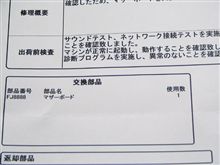 確認したため、マザーボード
修理概要
サウンドテスト、ネットワーク接続テストを実施
ことを確認致しました。
出荷前検査
マシンが正常に起動し、動作することを確認致
診断プログラムを実施し、異常のないことを確認
交換部品
部品番号 部品名 使用数
FJ8888 マザーボード 1
返却部品